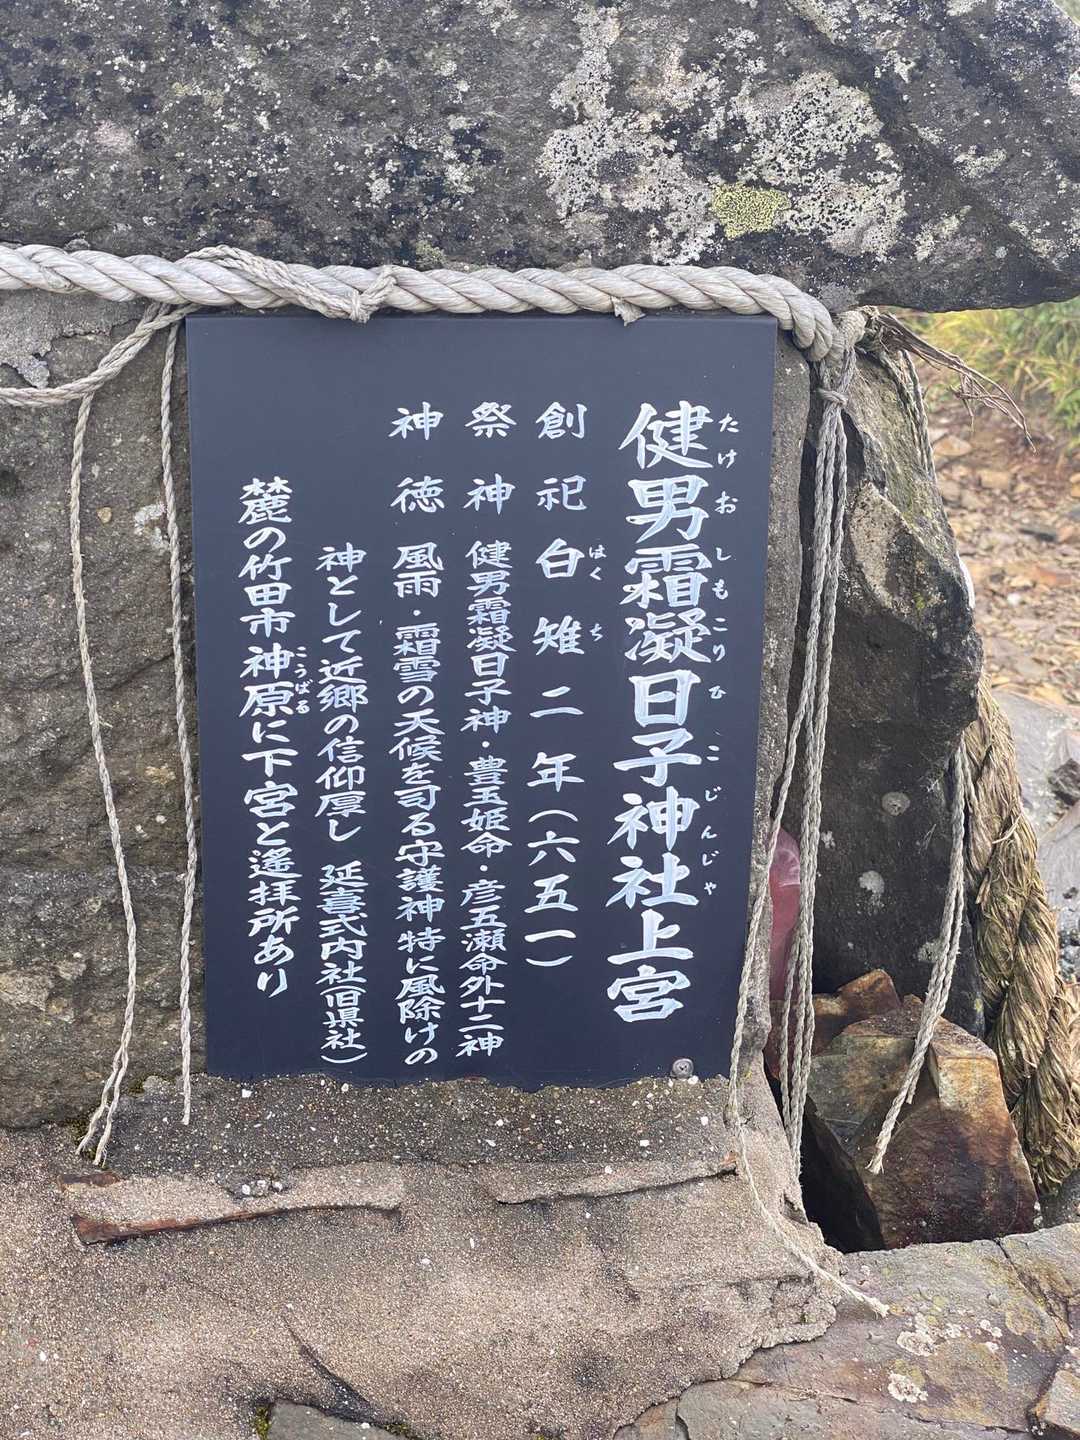 健男霜凝日子神社上宮
たけおしもこりひこじんじゃ
創祀 白雉二年(六五一)
はくち
祭神 健男霜凝日子神・豊玉姫命・彦五瀬命外十二神
神徳 風雨・霜雪の天候を司る守護神特に風除けの
神として近郷の信仰厚し 延喜式内社(旧県社)
麓の竹田市神原に下宮と遙拝所あり
こうばる